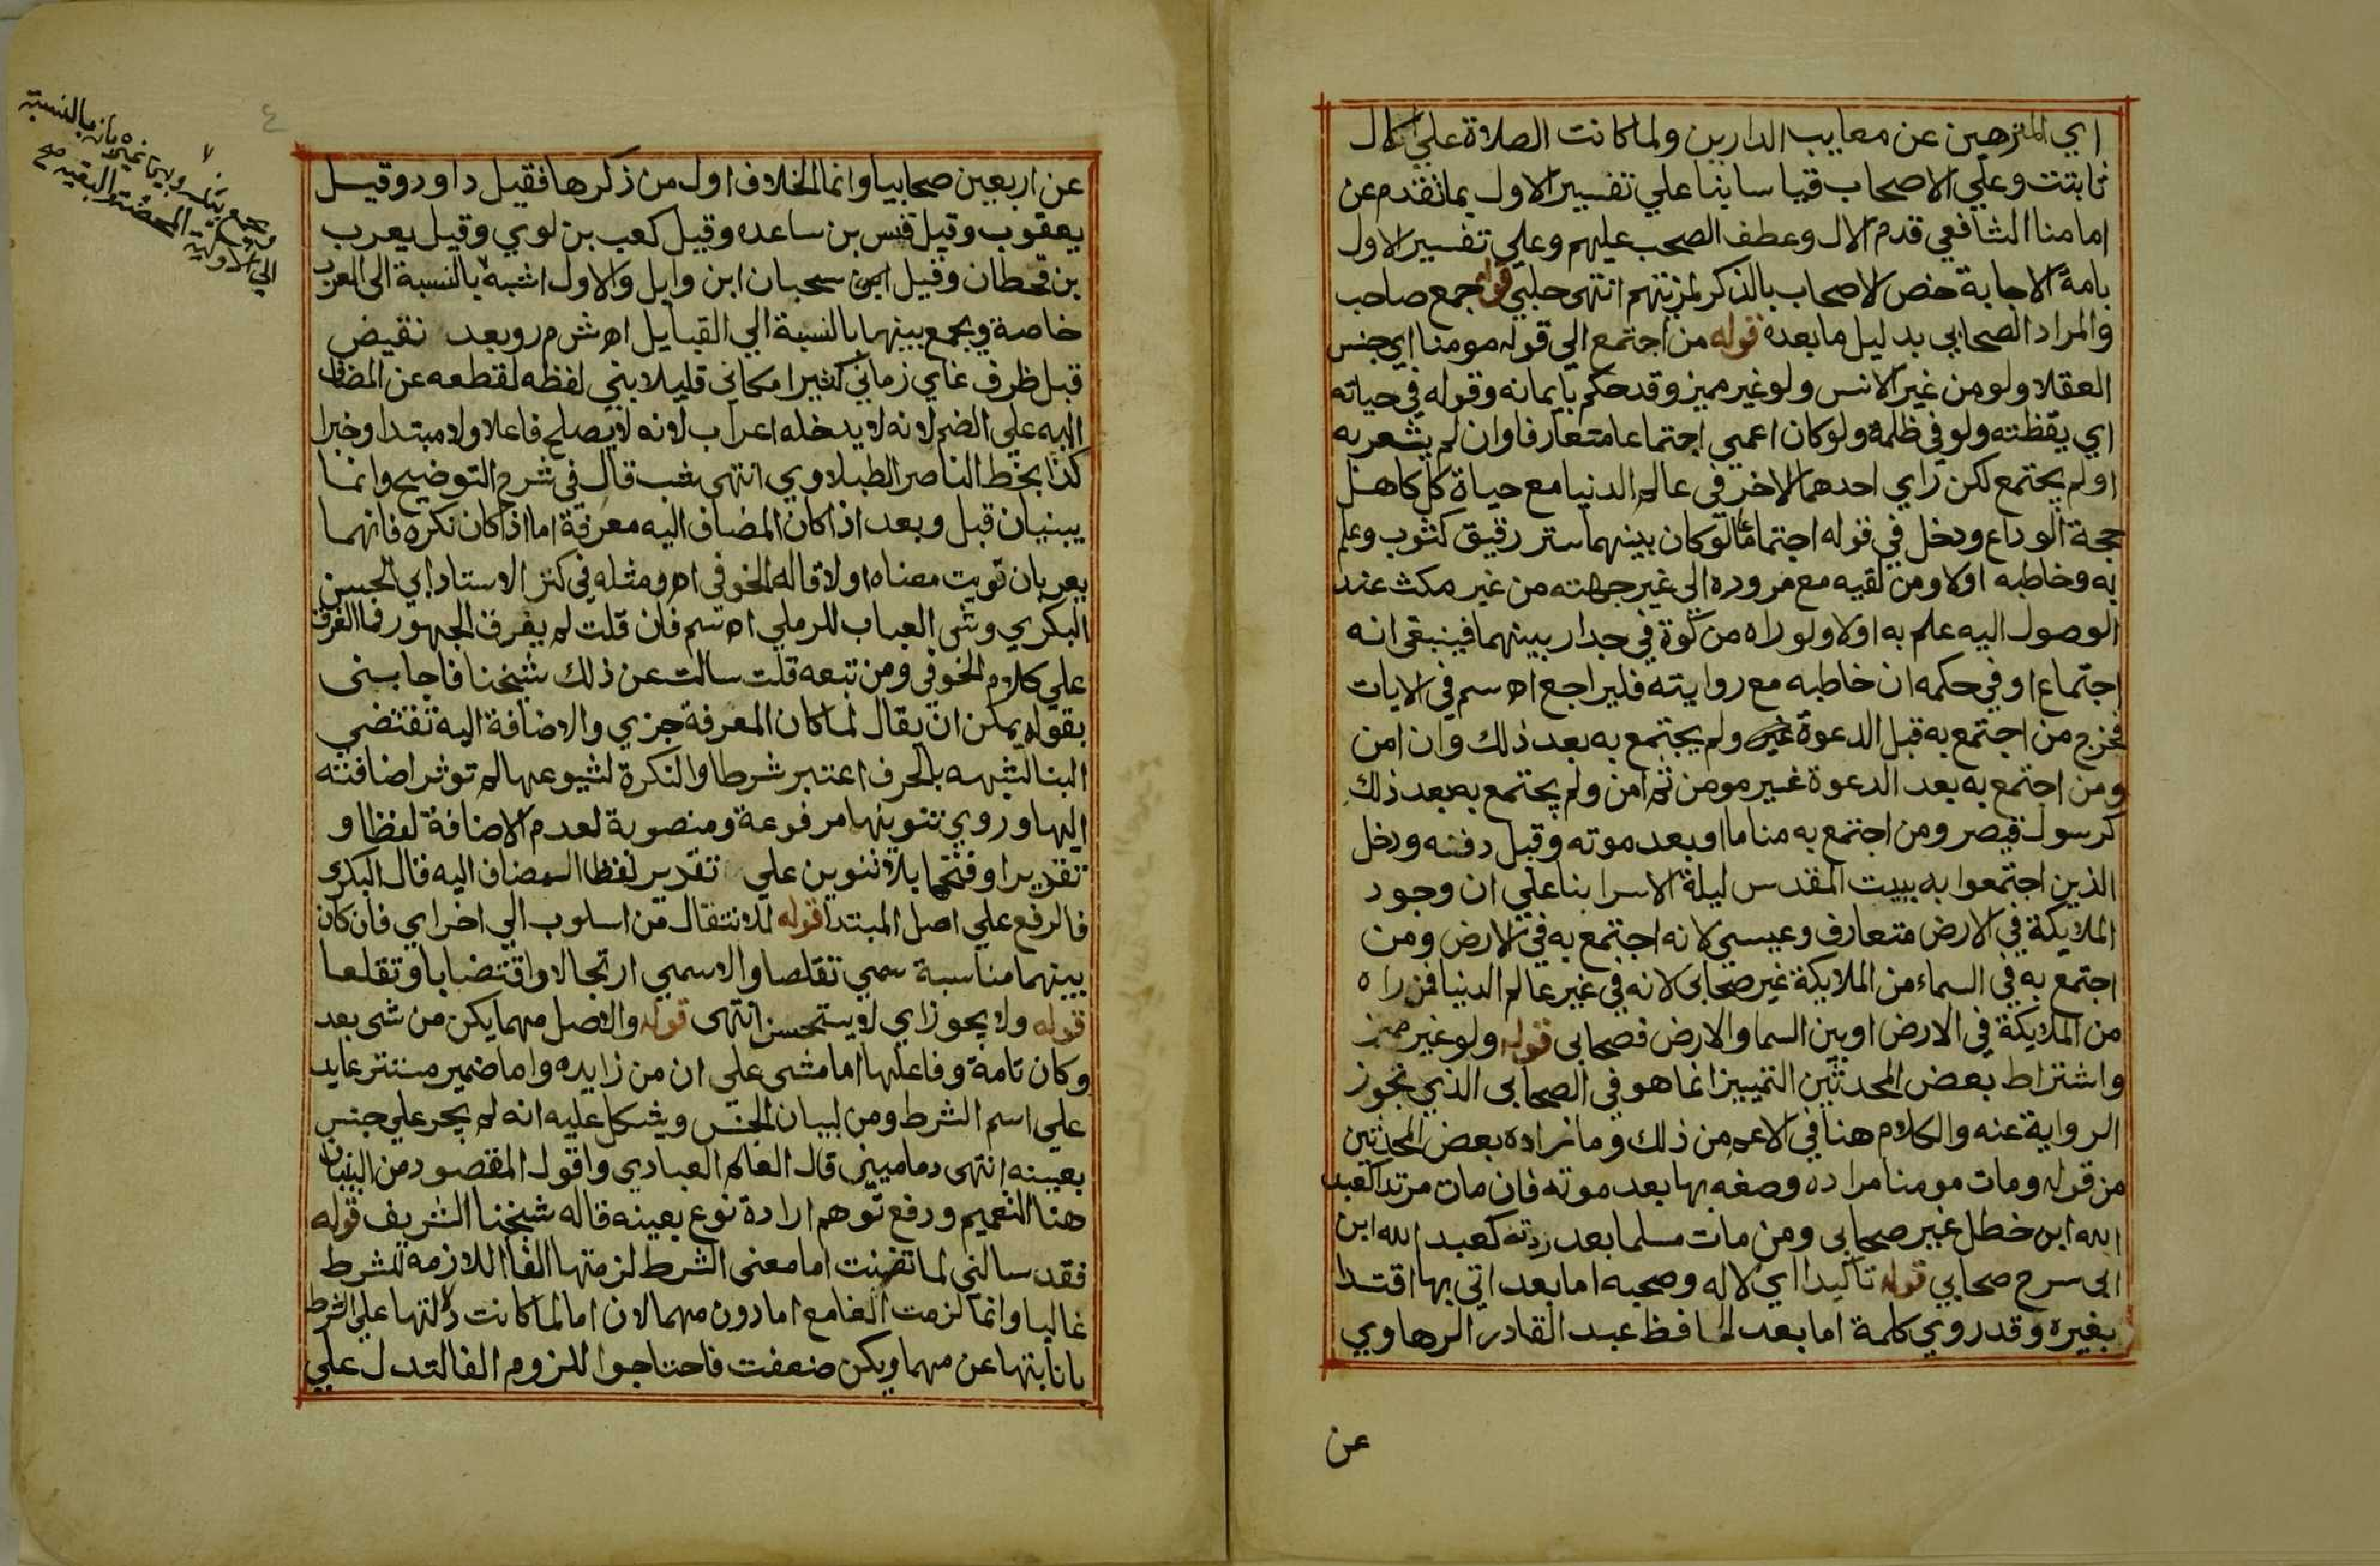 اي المنزهين عن معايب الدارين ولما كانت الصلاة علي الال
ثابتت وعلي الاصحاب قياسا بنا علي تفسير الاول بما تقدم عن
امامنا الشافعي قدم الال وعطف الصحب عليهم وعلي تفسير الاول
بامة الاجابة خص الاصحاب بالذكر لمزيتهم انتهى حلبي قوله جمع صاحب
والمراد الصحابي بدليل ما بعده قوله من اجتمع الي قوله مومنا اي جنس
العقلا ولو من غير الانس ولو غير مميز وقد حكم بايمانه وقوله في حياته
اي يقظته ولو في ظلمة ولو كان اعمي اجتماعا متعارفا وان لم يشعر به
او لم يجتمع لكن راي احدهما الاخر في عالم الدنيا مع حياة كل كاهل
حجة الوداع ودخل في قوله اجتماعا لو كان بينهما ستر رقيق كثوب وعلم
به وخاطبه اولا ومن لقيه مع مروره الي غير جهته من غير مكث عند
الوصول اليه علم به اولا ولو راه من كوة في جدار بينهما فينبغي انه
اجتماع او في حكمه ان خاطبه مع روايته فليراجع اه سم في الايات
فخرج من اجتمع به قبل الدعوة ولم يجتمع به بعد ذلك وان امن
ومن اجتمع به بعد الدعوة غير مومن ثم امن ولم يجتمع به بعد ذلك
كرسول قيصر ومن اجتمع به مناما او بعد موته وقبل دفنه ودخل
الذين اجتمعوا به ببيت المقدس ليلة الاسرا بنا علي ان وجود
الملايكة في الارض متعارف وعيسي لانه اجتمع به في الارض ومن
اجتمع به في السماء من الملايكة غير صحابي لانه في غير عالم الدنيا فمن راه
من الملايكة في الارض او بين السما والارض فصحابي قوله ولو غير مميز
واشتراط بعض المحدثين التمييز انما هو في الصحابي الذي تجوز
الرواية عنه والكلام هنا في الاعم من ذلك وما زاده بعض المحدثين
من قوله ومات مومنا مراده وصفه بها بعد موته فان مات مرتدا كعبد
الله ابن خطل غير صحابي ومن مات مسلما بعد ردته كعبد الله ابن
ابي سرح صحابي قوله تاكيدا اي لاله وصحبه اما بعد اتي بها اقتدا
بغيره وقد روي كلمة اما بعد الحافظ عبد القادر الرهاوي
عن
عن اربعين صحابيا وانما الخلاف اول من ذكرها فقيل داود وقيل
يعقوب وقيل قس بن ساعده وقيل كعب بن لوي وقيل يعرب
بن قحطان وقيل سحبان ابن وايل والاول اشبه بالنسبة الى العرب
خاصة ويجمع بينهما بالنسبة الي القبايل اه ش م ر وبعد نقيض
قبل ظرف غاي زماني كثيرا مكاني قليلا بني لفظه لقطعه عن المضاف
اليه علي الضم لانه لا يدخله اعراب لانه لا يصلح فاعلا ولا مبتدا وخبرا
كذا بخط الناصر الطبلاوي انتهى شب قال في شرح التوضيح وانما
يبنيان قبل وبعد اذا كان المضاف اليه معرفة اما اذا كان نكره فانهما
يعربان نويت معناه اولا قاله الخوفي اه ومثله في كنز الاستاد ابي الحسن
البكري وشى العباب للرملي اه سم فان قلت لم يفرق الجمهور فما الفرق
علي كلام الخوفي ومن تبعه قلت سالت عن ذلك شيخنا فاجابني
بقوله يمكن ان يقال لما كان المعرفة جزي والاضافة اليه تقتضي
البنا لشبهه بالحرف اعتبر شرطا والنكرة لشيوعها لم توثر اضافته
اليها وروي تنوينها مرفوعة ومنصوبة لعدم الاضافة لفظا و
تقديرا وفتحها بلا تنوين علي تقدير لفظا المضاف اليه قال البكري
فالرفع علي اصل المبتدا قوله للانتقال من اسلوب الي اخر اي فان كان
بينهما مناسبة سمي تقلصا والاسمي ارتجالا واقتضابا وتقلعا
قوله ولا يجوز اي لا يستحسن انتهى قوله والاصل مهما يكن من شى بعد
وكان تامة وفاعلها اما شى علي ان من زايده واما ضمير مستتر عايد
علي اسم الشرط ومن لبيان الجنس ويشكل عليه انه لم يجر علي جنس
بعينه انتهى دماميني قال العالم العبادي واقول المقصود من البنيان
هنا التعميم ورفع توهم ارادة نوع بعينه قاله شيخنا الشريف قوله
فقد سالني لما تضمنت اما معنى الشرط لزمتها الفا اللازمه للشرط
غالبا وانما لزمت الفا مع اما دون مهما لان اما لما كانت دلالتها علي الشرط
بانابتها عن مهما ويكن ضعفت فاحتاجوا للزوم الفا لتدل علي
٤